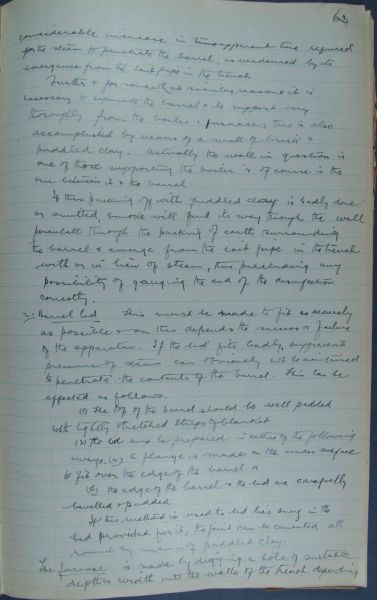 62
considerable increase in time apparent time required
for the steam to penetrate the barrel, as evidenced by its
emergence from the exit pipe in the trench
Further & for somewhat similar reasons it is
necessary to separate the barrel & its support very
thoroughly from the boiler & furnace, this is also
accomplished by means of a wall of bricks &
puddled clay. Actually the wall in question is
one of those supporting the boiler & of course is the
one between it & the barrel.
If this packing off with puddled clay is badly done
or omitted, smoke will find its way through the wall
through the packing of earth surrounding
the barrel & emerge from the exit pipe in the trench
with or in lieu of steam, thus precluding any
possibility of gauging the end of the disinfection
correctly.
Barrel lid This must be made to fit as securely
as possible & on this depends the success or failure
of the apparatus. If the lid fits badly, sufficient
pressure of steam can obviously not be maintained
to penetrate the contents of the barrel. This can be
effected as follows.
(1) The top of the barrel should be well padded
with tightly stretched strips of blanket
(2) The lid can be prepared in either of the following
ways. (a) A flange is made on the under surface
to fit over the edge of the barrel or
(b) the edge of the barrel & the lid are carefully
bevelled & padded
If this method is used the lid lies snug in the
bed provided for it, the joint can be cemented all
round by means of puddled clay.
The furnace is made by digging a hole of suitable
depth & width into the walls of the trench depending